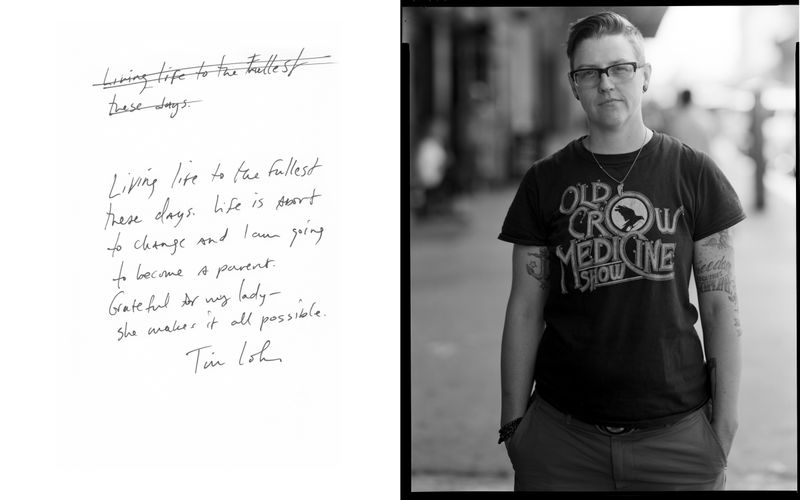 Living life to the fullest
these days.
Living life to the fullest
these days. Life is about
to change and I am going
to become a parent.
Grateful for my lady-
she makes it all possible.
Tim
OLD
CROW
MEDICINE
SHOW
Freedom